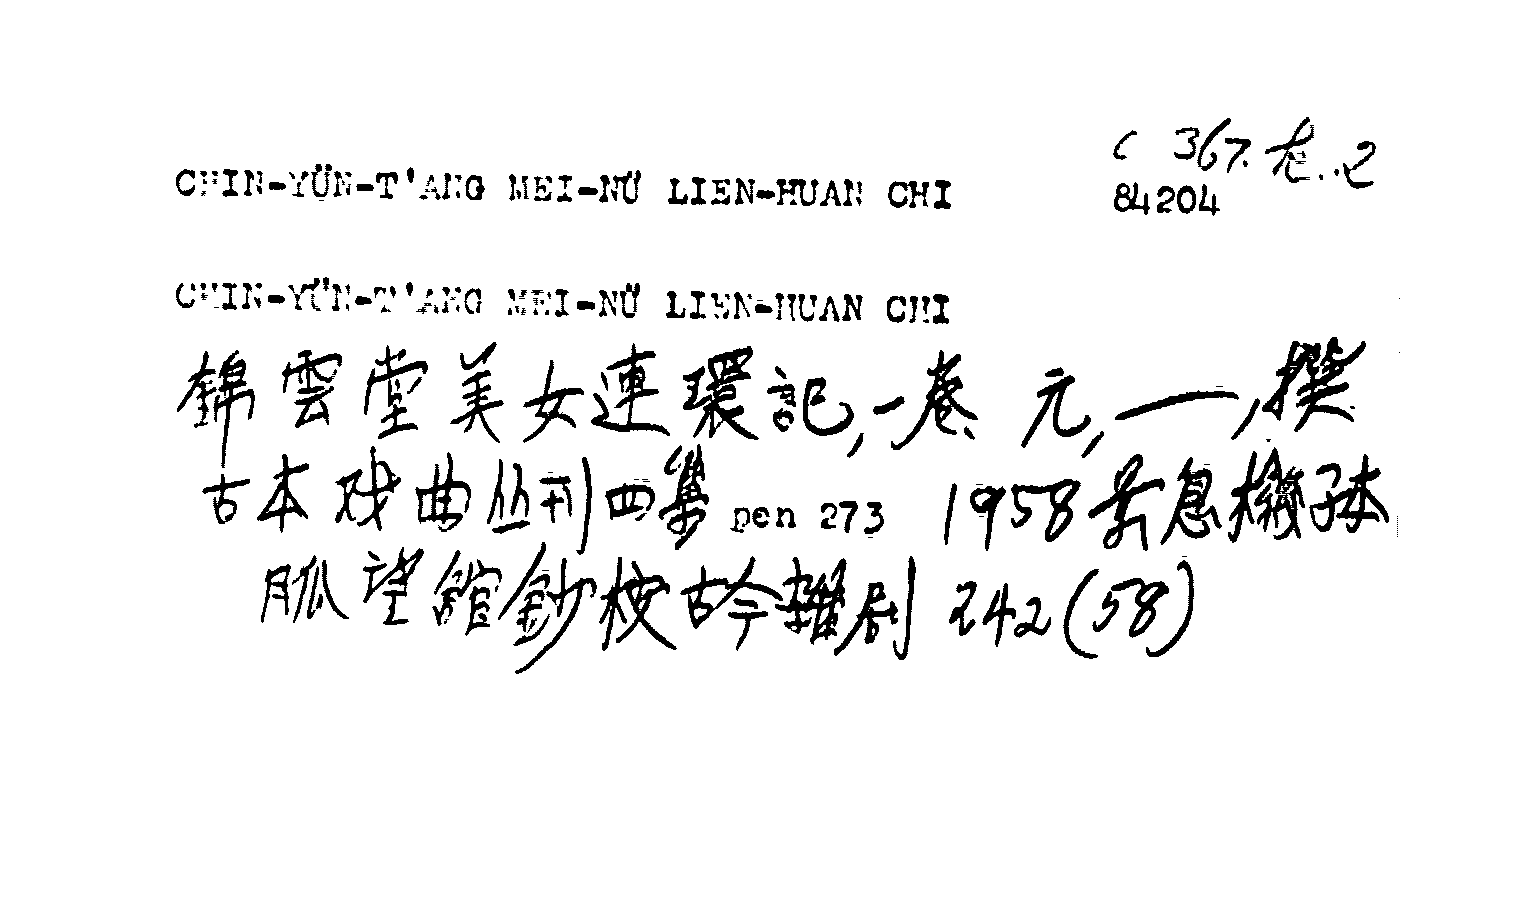 CHIN-YÜN-T'ANG MEI-NÜ LIEN-HUAN CHI
C 367.
84204
CHIN-YÜN-T'ANG MEI-NÜ LIEN-HUAN CHI
錦雲堂美女連環記,一卷 元,——,撰
古本戏曲丛刊四集 pen 273 1958 息機子本
脈望館鈔校古今雜剧 242 (58)